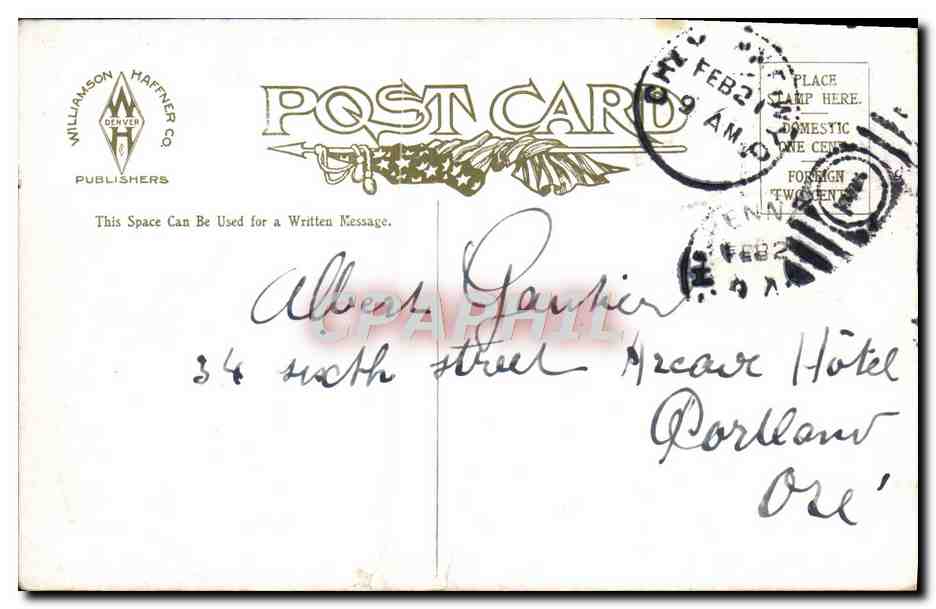 WILLIAMSON HAFFNER CO.
W
DENVER
H
PUBLISHERS
POST CARD
PLACE
STAMP HERE.
DOMESTIC
ONE CENT
FOREIGN
TWO CENTS
FEB 21
9 AM
ENN
FEB 2
This Space Can Be Used for a Written Message.
Albert Gautier
34 sixth street Arcave Hôtel
Portland
Oré
CPAPHIL